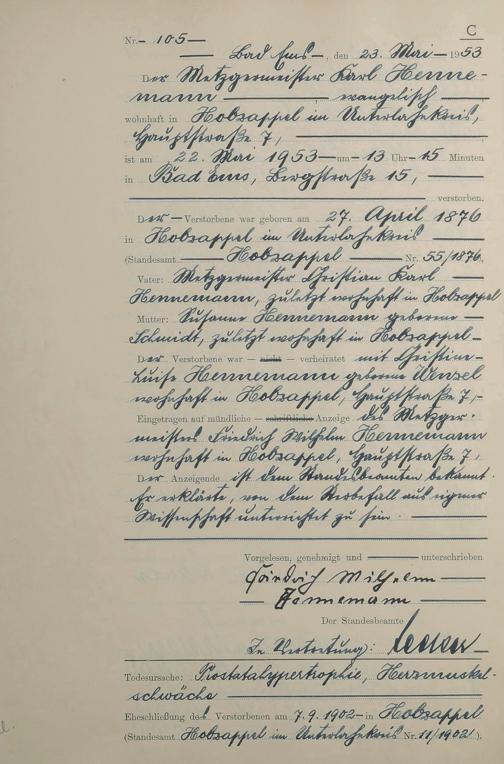 C
Nr. 105
Bad Ems, den 23. Mai 1953
Der Metzgermeister Karl Henne-
mann evangelisch
wohnhaft in Holzappel im Unterlahnkreis,
Hauptstraße 7,
ist am 22. Mai 1953 um 13 Uhr 15 Minuten
in Bad Ems, Bergstraße 15,
verstorben.
Der Verstorbene war geboren am 27. April 1876
in Holzappel im Unterlahnkreis
(Standesamt Holzappel Nr. 55/1876.
Vater: Metzgermeister Christian Karl
Hennemann, zuletzt wohnhaft in Holzappel
Mutter: Susanne Hennemann geborene
Schmidt, zuletzt wohnhaft in Holzappel
Der Verstorbene war nicht verheiratet mit Christine
Luise Hennemann geborene Wenzel
wohnhaft in Holzappel, Hauptstraße 7,
Eingetragen auf mündliche schriftliche Anzeige des Metzger-
meisters Friedrich Wilhelm Hennemann
wohnhaft in Holzappel, Hauptstraße 7,
Der Anzeigende ist dem Standesbeamten bekannt.
Er erklärte, von dem Sterbefall aus eigener
Wissenschaft unterrichtet zu sein.
Vorgelesen, genehmigt und unterschrieben
Friedrich Wilhelm
Hennemann
Der Standesbeamte
In Vertretung:
Todesursache: Prostatahypertrophie, Herzmuskel-
schwäche
Eheschließung des Verstorbenen am 7.9.1902 in Holzappel
(Standesamt Holzappel im Unterlahnkreis Nr. 11/1902).